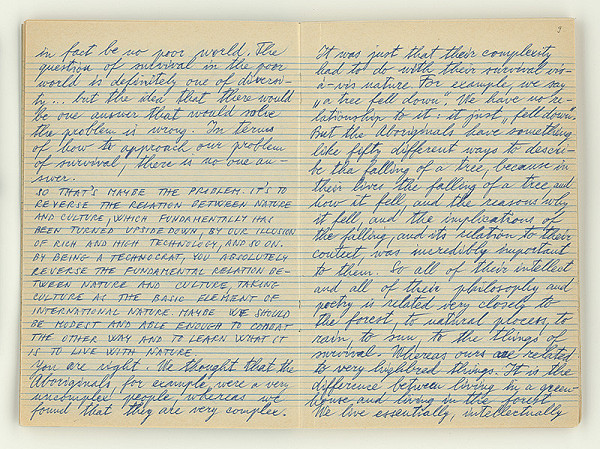 in fact be no poor world. The
question of survival in the poor
world is definitely one of diversi-
ty... but the idea that there would
be one answer that would solve
the problem is wrong. In terms
of how to approach our problem
of survival, there is no one an-
swer.
SO THAT'S MAYBE THE PROBLEM. IT'S TO
REVERSE THE RELATION BETWEEN NATURE
AND CULTURE, WHICH FUNDAMENTALLY HAS
BEEN TURNED UPSIDE DOWN, BY OUR ILLUSION
OF RICH AND HIGH TECHNOLOGY, AND SO ON.
BY BEING A TECHNOCRAT, YOU ABSOLUTELY
REVERSE THE FUNDAMENTAL RELATION BE-
TWEEN NATURE AND CULTURE, TAKING
CULTURE AS THE BASIC ELEMENT OF
INTERNATIONAL NATURE. MAYBE WE SHOULD
BE MODEST AND ABLE ENOUGH TO COMBAT
THE OTHER WAY AND TO LEARN WHAT IT
IS TO LIVE WITH NATURE
You are right. We thought that the
Aboriginals, for example, were a very
uncomplex people, whereas we
found that they are very complex.
It was just that their complexity
had to do with their survival vis-
à-vis nature. For example, we say
„a tree fell down". We have no re-
lationship to it: it just „fell down".
But the Aboriginals have something
like fifty different ways to descri-
be the falling of a tree, because in
their lives the falling of a tree and
how it fell, and the reasons why
it fell, and the implications of
the falling, and its relation to their
context, was incredibly important
to them. So all of their intellect
and all of their philosophy and
poetry is related very closely to
the forest, to natural process, to
rain, to sun, to the things of
survival. Whereas ours are related
to very highbred things. It is the
difference between living in a green-
house and living in the forest.
We live essentially, intellectually